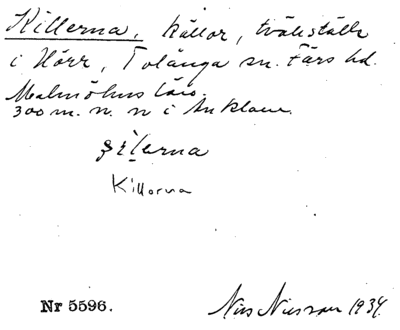 Killerna, källor, tvättställe
i Hörr, Tolånga sn. Färs hd.
Malmöhus län.
300 m. n. n i Anklam.
Killorna
Nr 5596.
Nils Nilsson 1934.